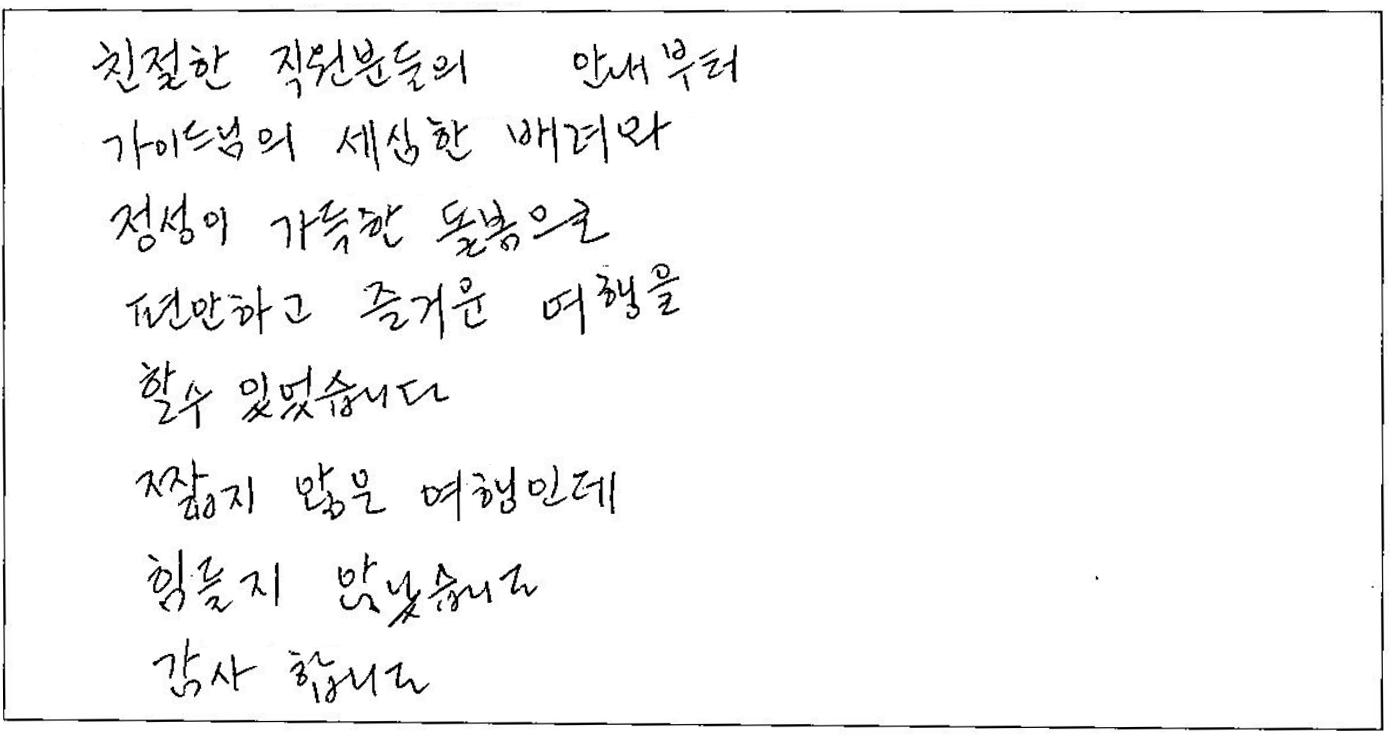 친절한 직원분들의 안내부터
가이드님의 세심한 배려와
정성이 가득한 돌봄으로
편안하고 즐거운 여행을
할수 있었습니다
짧지 않은 여행인데
힘들지 않났습니다
감사 합니다